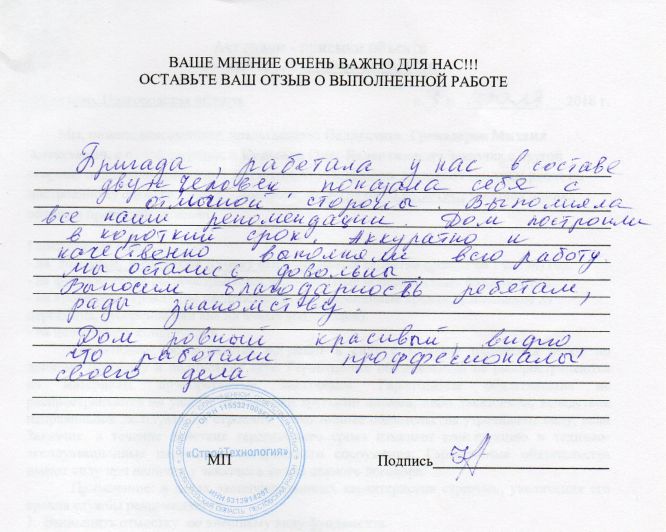 ВАШЕ МНЕНИЕ ОЧЕНЬ ВАЖНО ДЛЯ НАС!!!
ОСТАВЬТЕ ВАШ ОТЗЫВ О ВЫПОЛНЕННОЙ РАБОТЕ
Бригада, работала у нас в составе
двух человек, показала себя с
отличной стороны. Выполняла
все наши рекомендации. Дом построили
в короткий срок. Аккуратно и
качественно выполняли всю работу.
Мы остались довольны.
Выносим благодарность ребятам,
рады знакомству.
Дом ровный красивый, видно
что работали проффессионалы
своего дела
«СтройТехнология»
МП Подпись